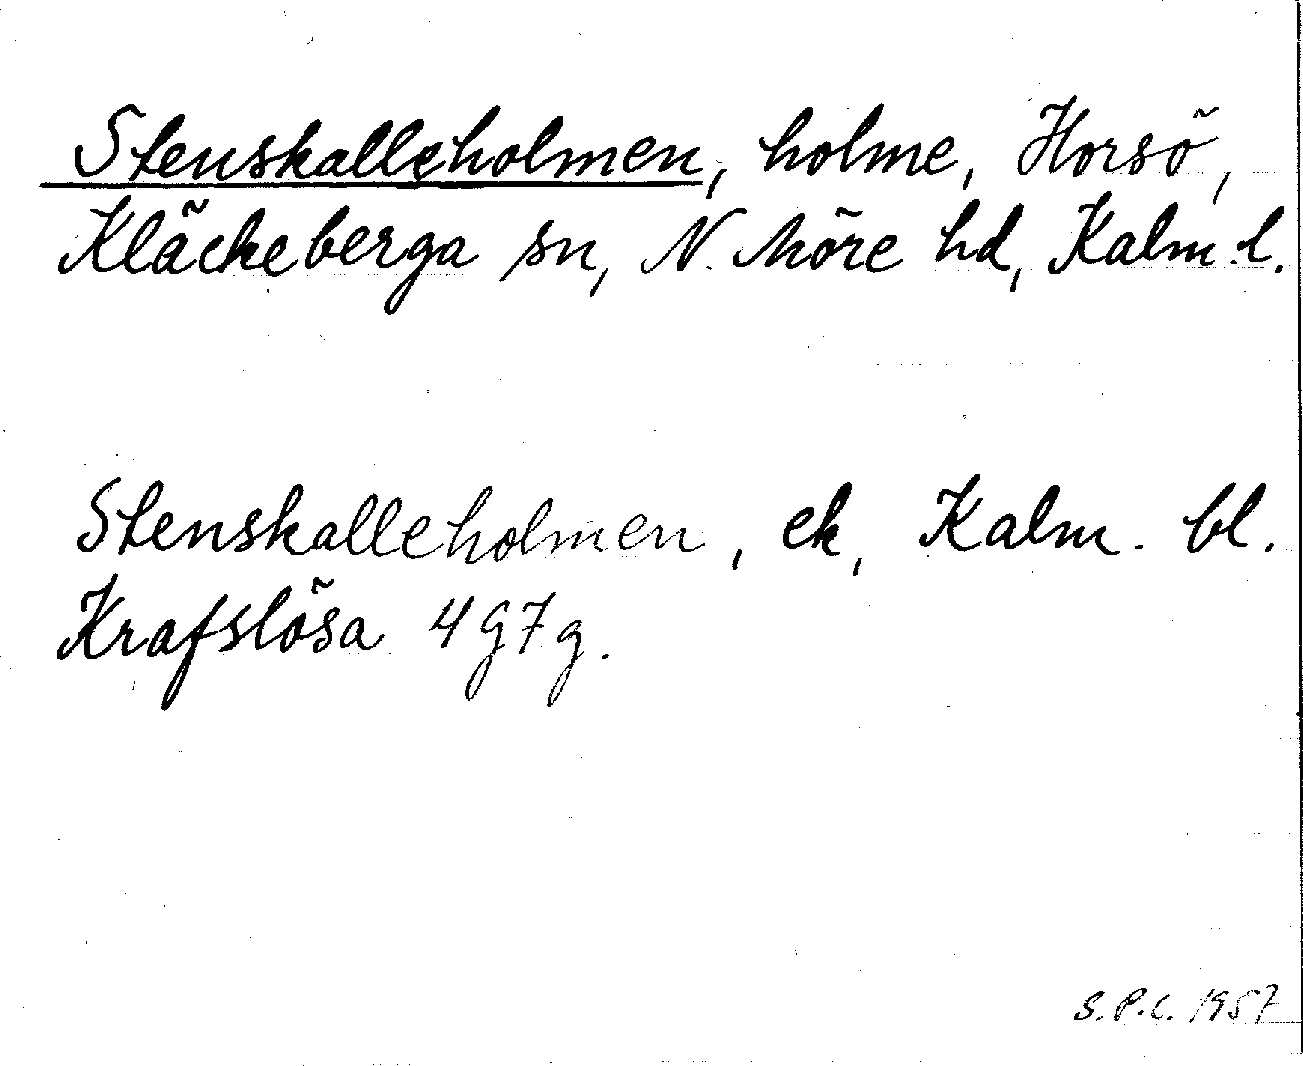 Stenskalleholmen, holme, Horsö,
Kläckeberga sn, N. Möre hd, Kalm. l.
Stenskalleholmen, ek, Kalm. bl.
Krafslösa 4 g 7 g.
S.P.C. 1957